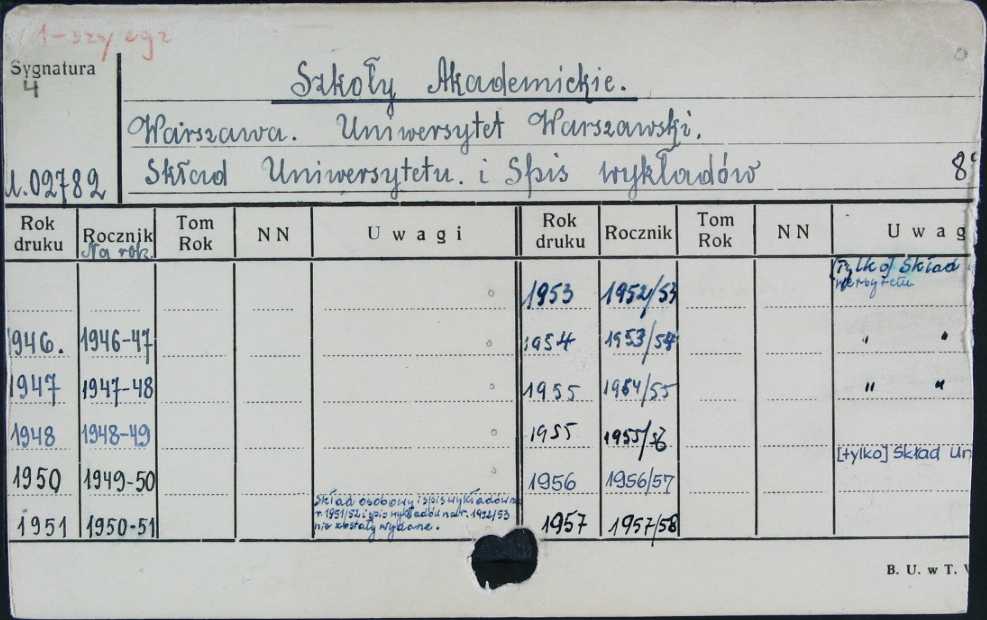 1-szy egz
Sygnatura
4
Szkoły Akademickie.
Warszawa. Uniwersytet Warszawski.
02782
Skład Uniwersytetu. i Spis wykładów 8°
Rok druku Rocznik Tom Rok NN Uwagi Rok druku Rocznik Tom Rok NN Uwag
Na rok.
1953 1952/53 [tylko] Skład
1946. 1946-47 1954 1953/54 " "
1947 1947-48 1955 1954/55 " "
1948 1948-49 1955 1955/56
1950 1949-50 1956 1956/57 [tylko] Skład Un
1951 1950-51 Skład osobowy i spis wykładów na
r. 1951/52 i spis wykładów na r. 1952/53
nie zostały wydane.
1957 1957/58
B. U. w T.